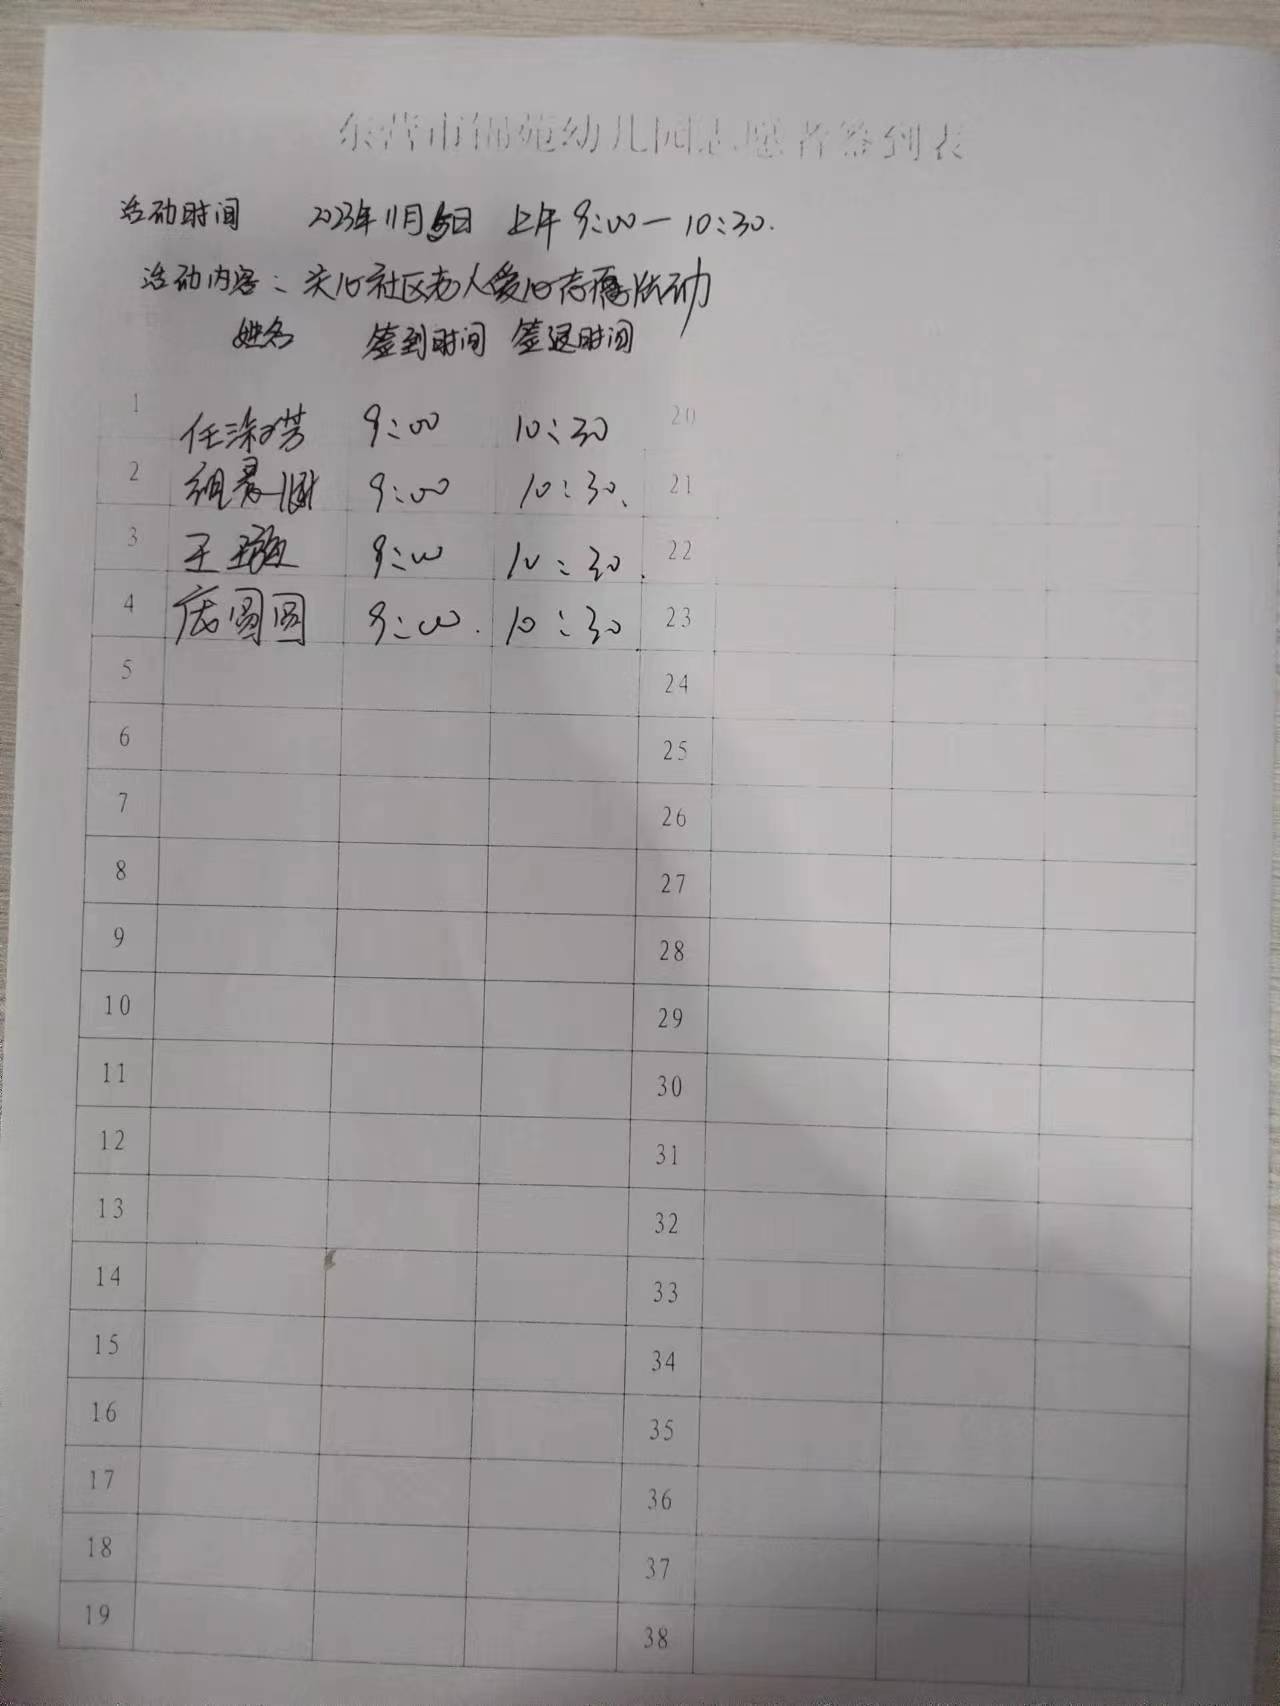 东营市锦苑幼儿园志愿者签到表
活动时间 2023年11月5日 上午 9:00-10:30.
活动内容: 关心社区老人爱心志愿活动
姓名 签到时间 签退时间
1 任淑芳 9:00 10:30 20
2 9:00 10:30. 21
3 王璇 9:00 10:30. 22
4 圆圆 9:00. 10:30. 23
5 24
6 25
7 26
8 27
9 28
10 29
11 30
12 31
13 32
14 33
15 34
16 35
17 36
18 37
19 38